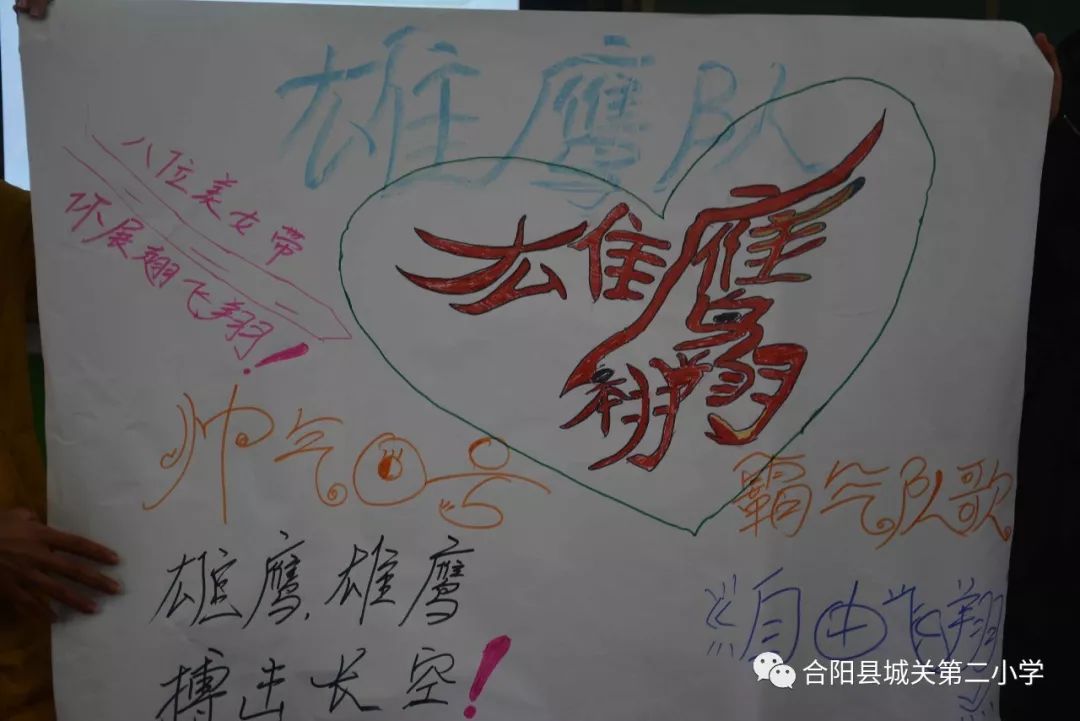 雄鹰队
八位美女带
你展翅飞翔!
雄鹰
翱翔
帅气口号
霸气队歌
雄鹰,雄鹰
搏击长空!
《自由飞翔》
合阳县城关第二小学